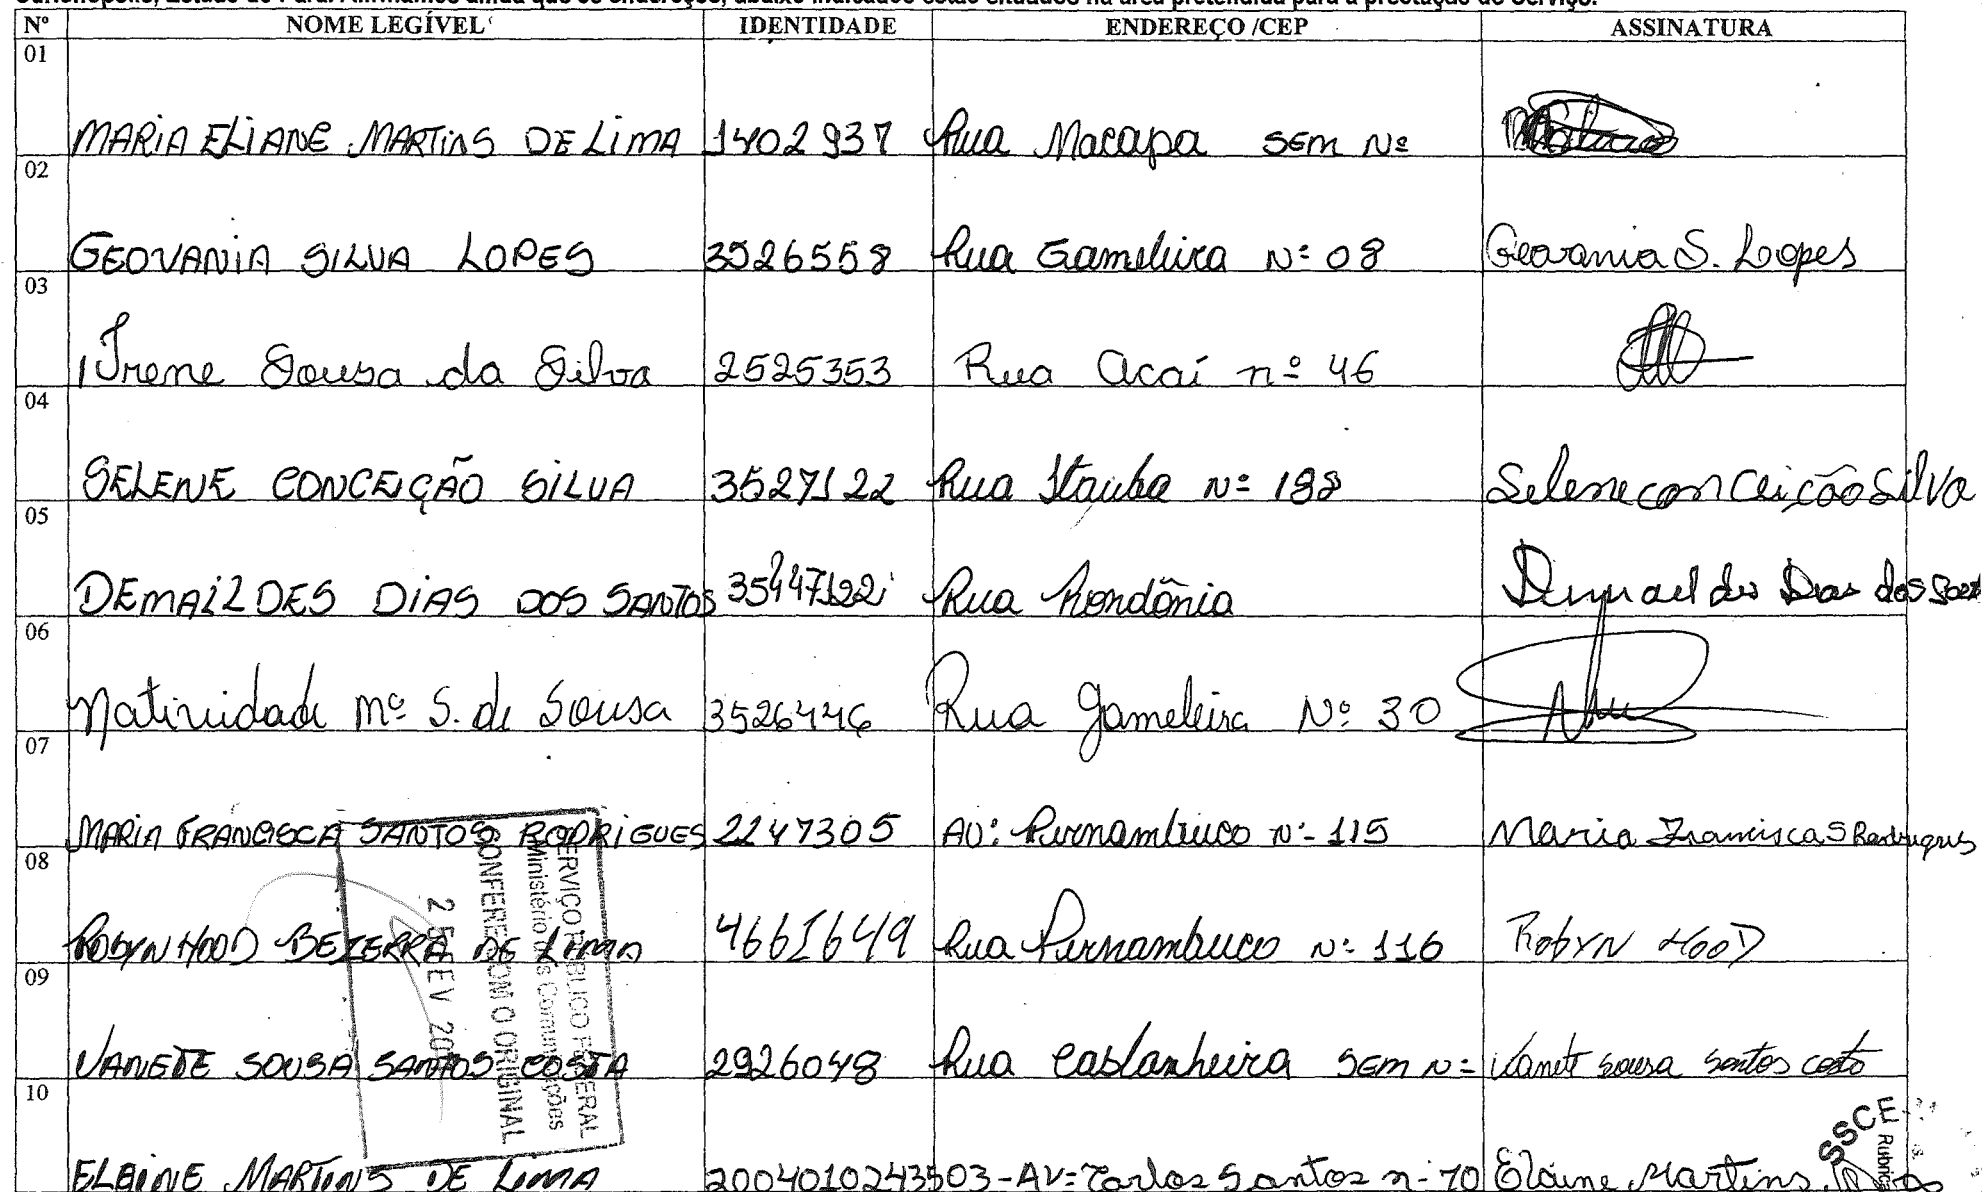 Nº NOME LEGÍVEL IDENTIDADE ENDEREÇO /CEP ASSINATURA
01
MARIA ELIANE MARTINS DE LIMA 1402937 Rua Macapa SEM Nº
02
GEOVANIA SILVA LOPES 3526558 Rua Gameleira Nº 08 Geovania S. Lopes
03
Irene Sousa da Silva 2525353 Rua Açaí nº 46
04
SELENE CONCEIÇÃO SILVA 3527122 Rua Itauba Nº 188 Selene conceição Silva
05
DEMAILDES DIAS DOS SANTOS Rua Rondônia Dias dos
06
Natividade Mª S. de Sousa 3526446 Rua Gameleira Nº 30
07
MARIA FRANCISCA SANTOS RODRIGUES 2247305 AV: Pernambuco Nº 115 Maria Francisca S Rodrigues
08
ROBYN HOOD BEZERRA DE LIMA 4661649 Rua Pernambuco Nº 116 RobYN HOOD
09
VANETE SOUSA SANTOS COSTA 2926048 Rua Castanheira SEM Nº Vanete sousa santos costa
10
ELAINE MARTINS DE LIMA 2004010243503-AV=Carlos Santos n-70 Elaine Martins
SERVIÇO PÚBLICO FEDERAL
Ministério das Comunicações
CONFERE COM O ORIGINAL
25 FEV
SSCE
Rubrica